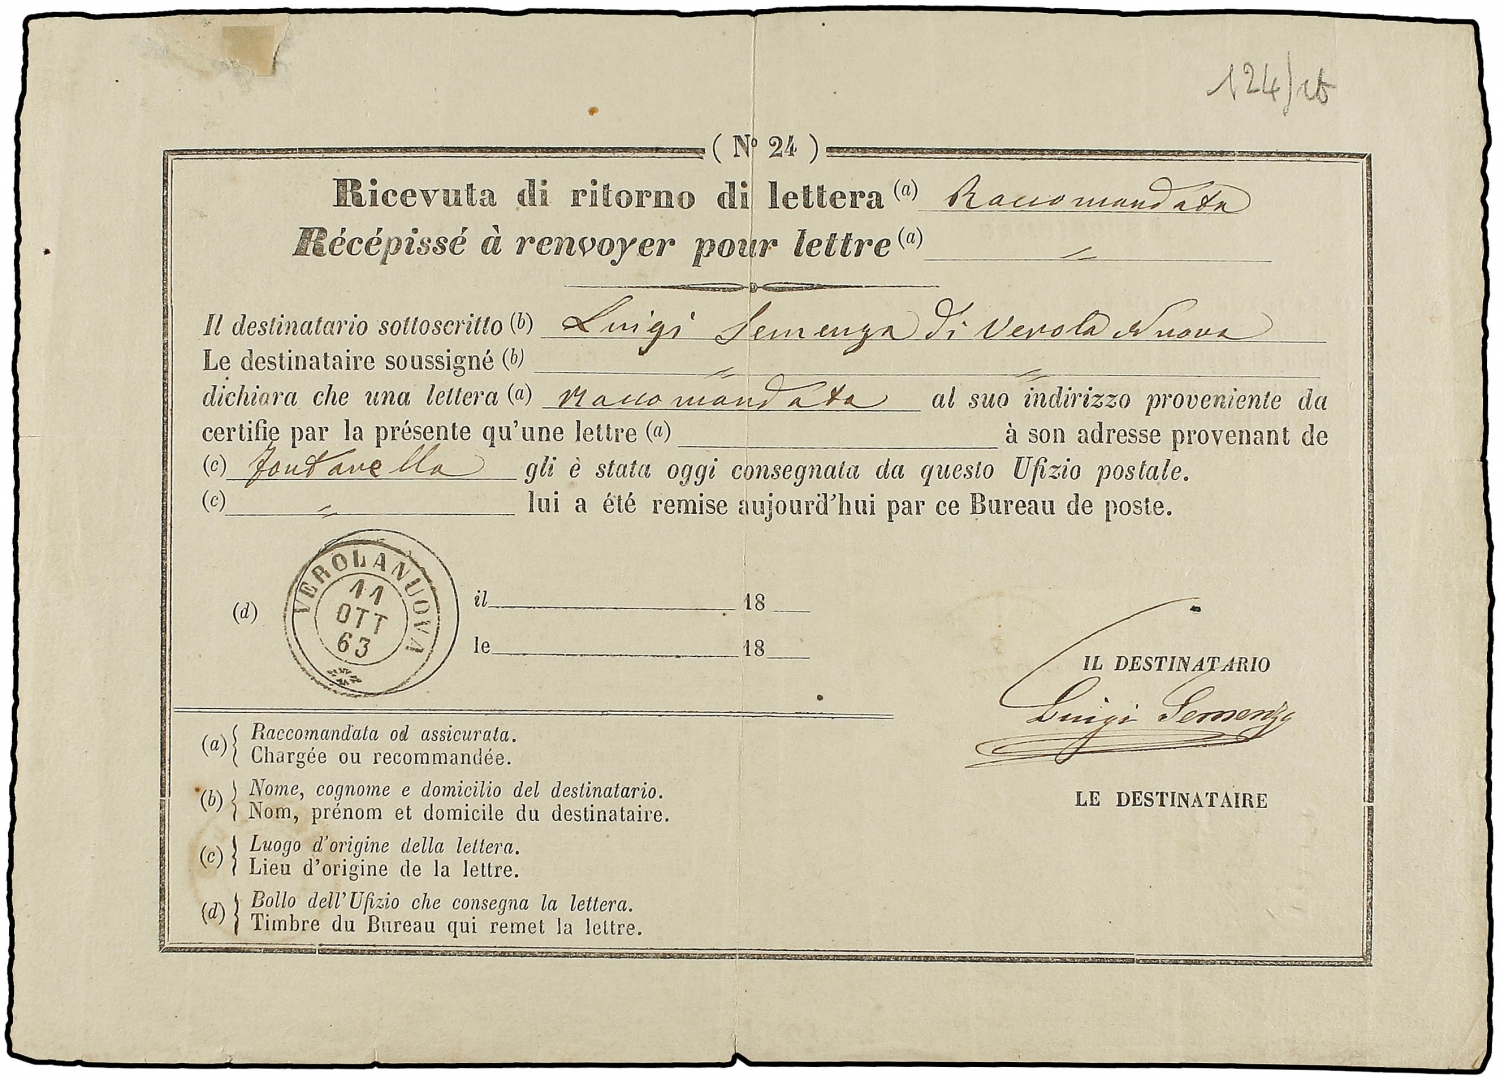 124/
( Nº 24 )
Ricevuta di ritorno di lettera (a) Raccomandata
Récépissé à renvoyer pour lettre (a) 〃
Il destinatario sottoscritto (b) Luigi Semenza di Verola Nuova
Le destinataire soussigné (b) 〃 〃
dichiara che una lettera (a) Raccomandata al suo indirizzo proveniente da
certifie par la présente qu'une lettre (a) à son adresse provenant de
(c) Fontanella gli è stata oggi consegnata da questo Ufizio postale.
(c) 〃 lui a été remise aujourd'hui par ce Bureau de poste.
VEROLANUOVA
11
OTT
63
(d) il 18
le 18
IL DESTINATARIO
Luigi Semenza
LE DESTINATAIRE
(a) { Raccomandata od assicurata.
Chargée ou recommandée.
(b) { Nome, cognome e domicilio del destinatario.
Nom, prénom et domicile du destinataire.
(c) { Luogo d'origine della lettera.
Lieu d'origine de la lettre.
(d) { Bollo dell'Ufizio che consegna la lettera.
Timbre du Bureau qui remet la lettre.